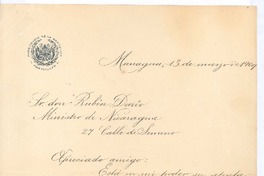 Managua, 13 de marzo de 1909
Sr. don Rubén Darío
Ministro de Nicaragua
27 Calle de Serrano
Apreciado amigo:
Está en mi poder su atenta